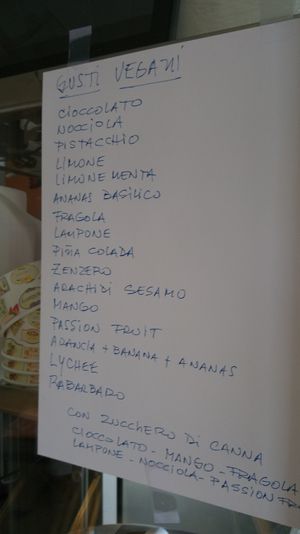 GUSTI VEGANI
CIOCCOLATO
NOCCIOLA
PISTACCHIO
LIMONE
LIMONE MENTA
ANANAS BASILICO
FRAGOLA
LAMPONE
PIÑA COLADA
ZENZERO
ARACHIDI SESAMO
MANGO
PASSION FRUIT
ARANCIA + BANANA + ANANAS
LYCHEE
RABARBARO
CON ZUCCHERO DI CANNA
CIOCCOLATO - MANGO - FRAGOLA
LAMPONE - NOCCIOLA - PASSION FR